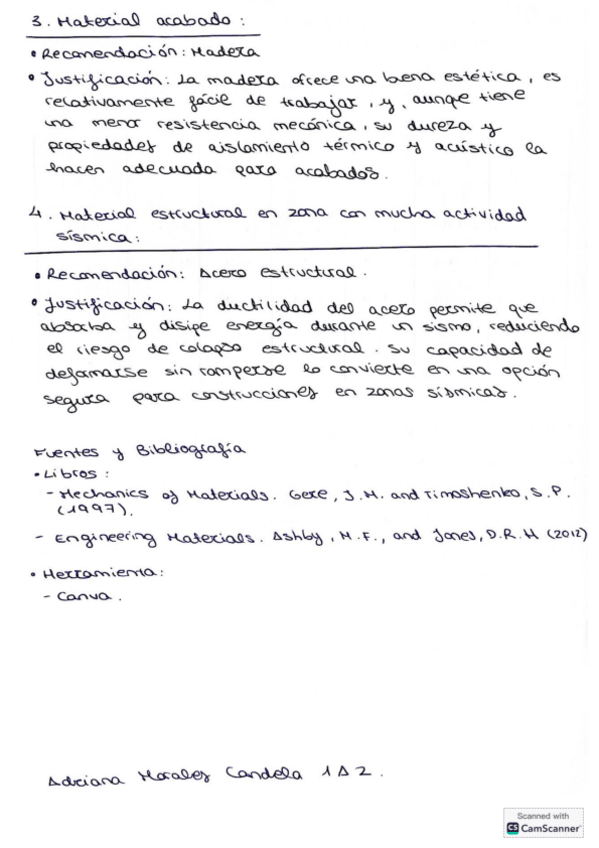 3. Material acabado:
• Recomendación: Madera
• Justificación: La madera ofrece una buena estética, es
relativamente fácil de trabajar, y, aunque tiene
una menor resistencia mecánica, su dureza y
propiedades de aislamiento térmico y acústico la
hacen adecuada para acabados.
4. Material estructural en zona con mucha actividad
sísmica:
• Recomendación: Acero estructural.
• Justificación: La ductilidad del acero permite que
absorba y disipe energía durante un sismo, reduciendo
el riesgo de colapso estructural. Su capacidad de
deformarse sin romperse lo convierte en una opción
segura para construcciones en zonas sísmicas.
Fuentes y Bibliografía
• Libros:
- Mechanics of Materials. Gere, J.M. and Timoshenko, S.P.
(1997).
- Engineering Materials. Ashby, M.F., and Jones, D.R.H (2012)
• Herramienta:
- Canva.
Adriana Morales Candela 1A2.
Scanned with
CS CamScanner